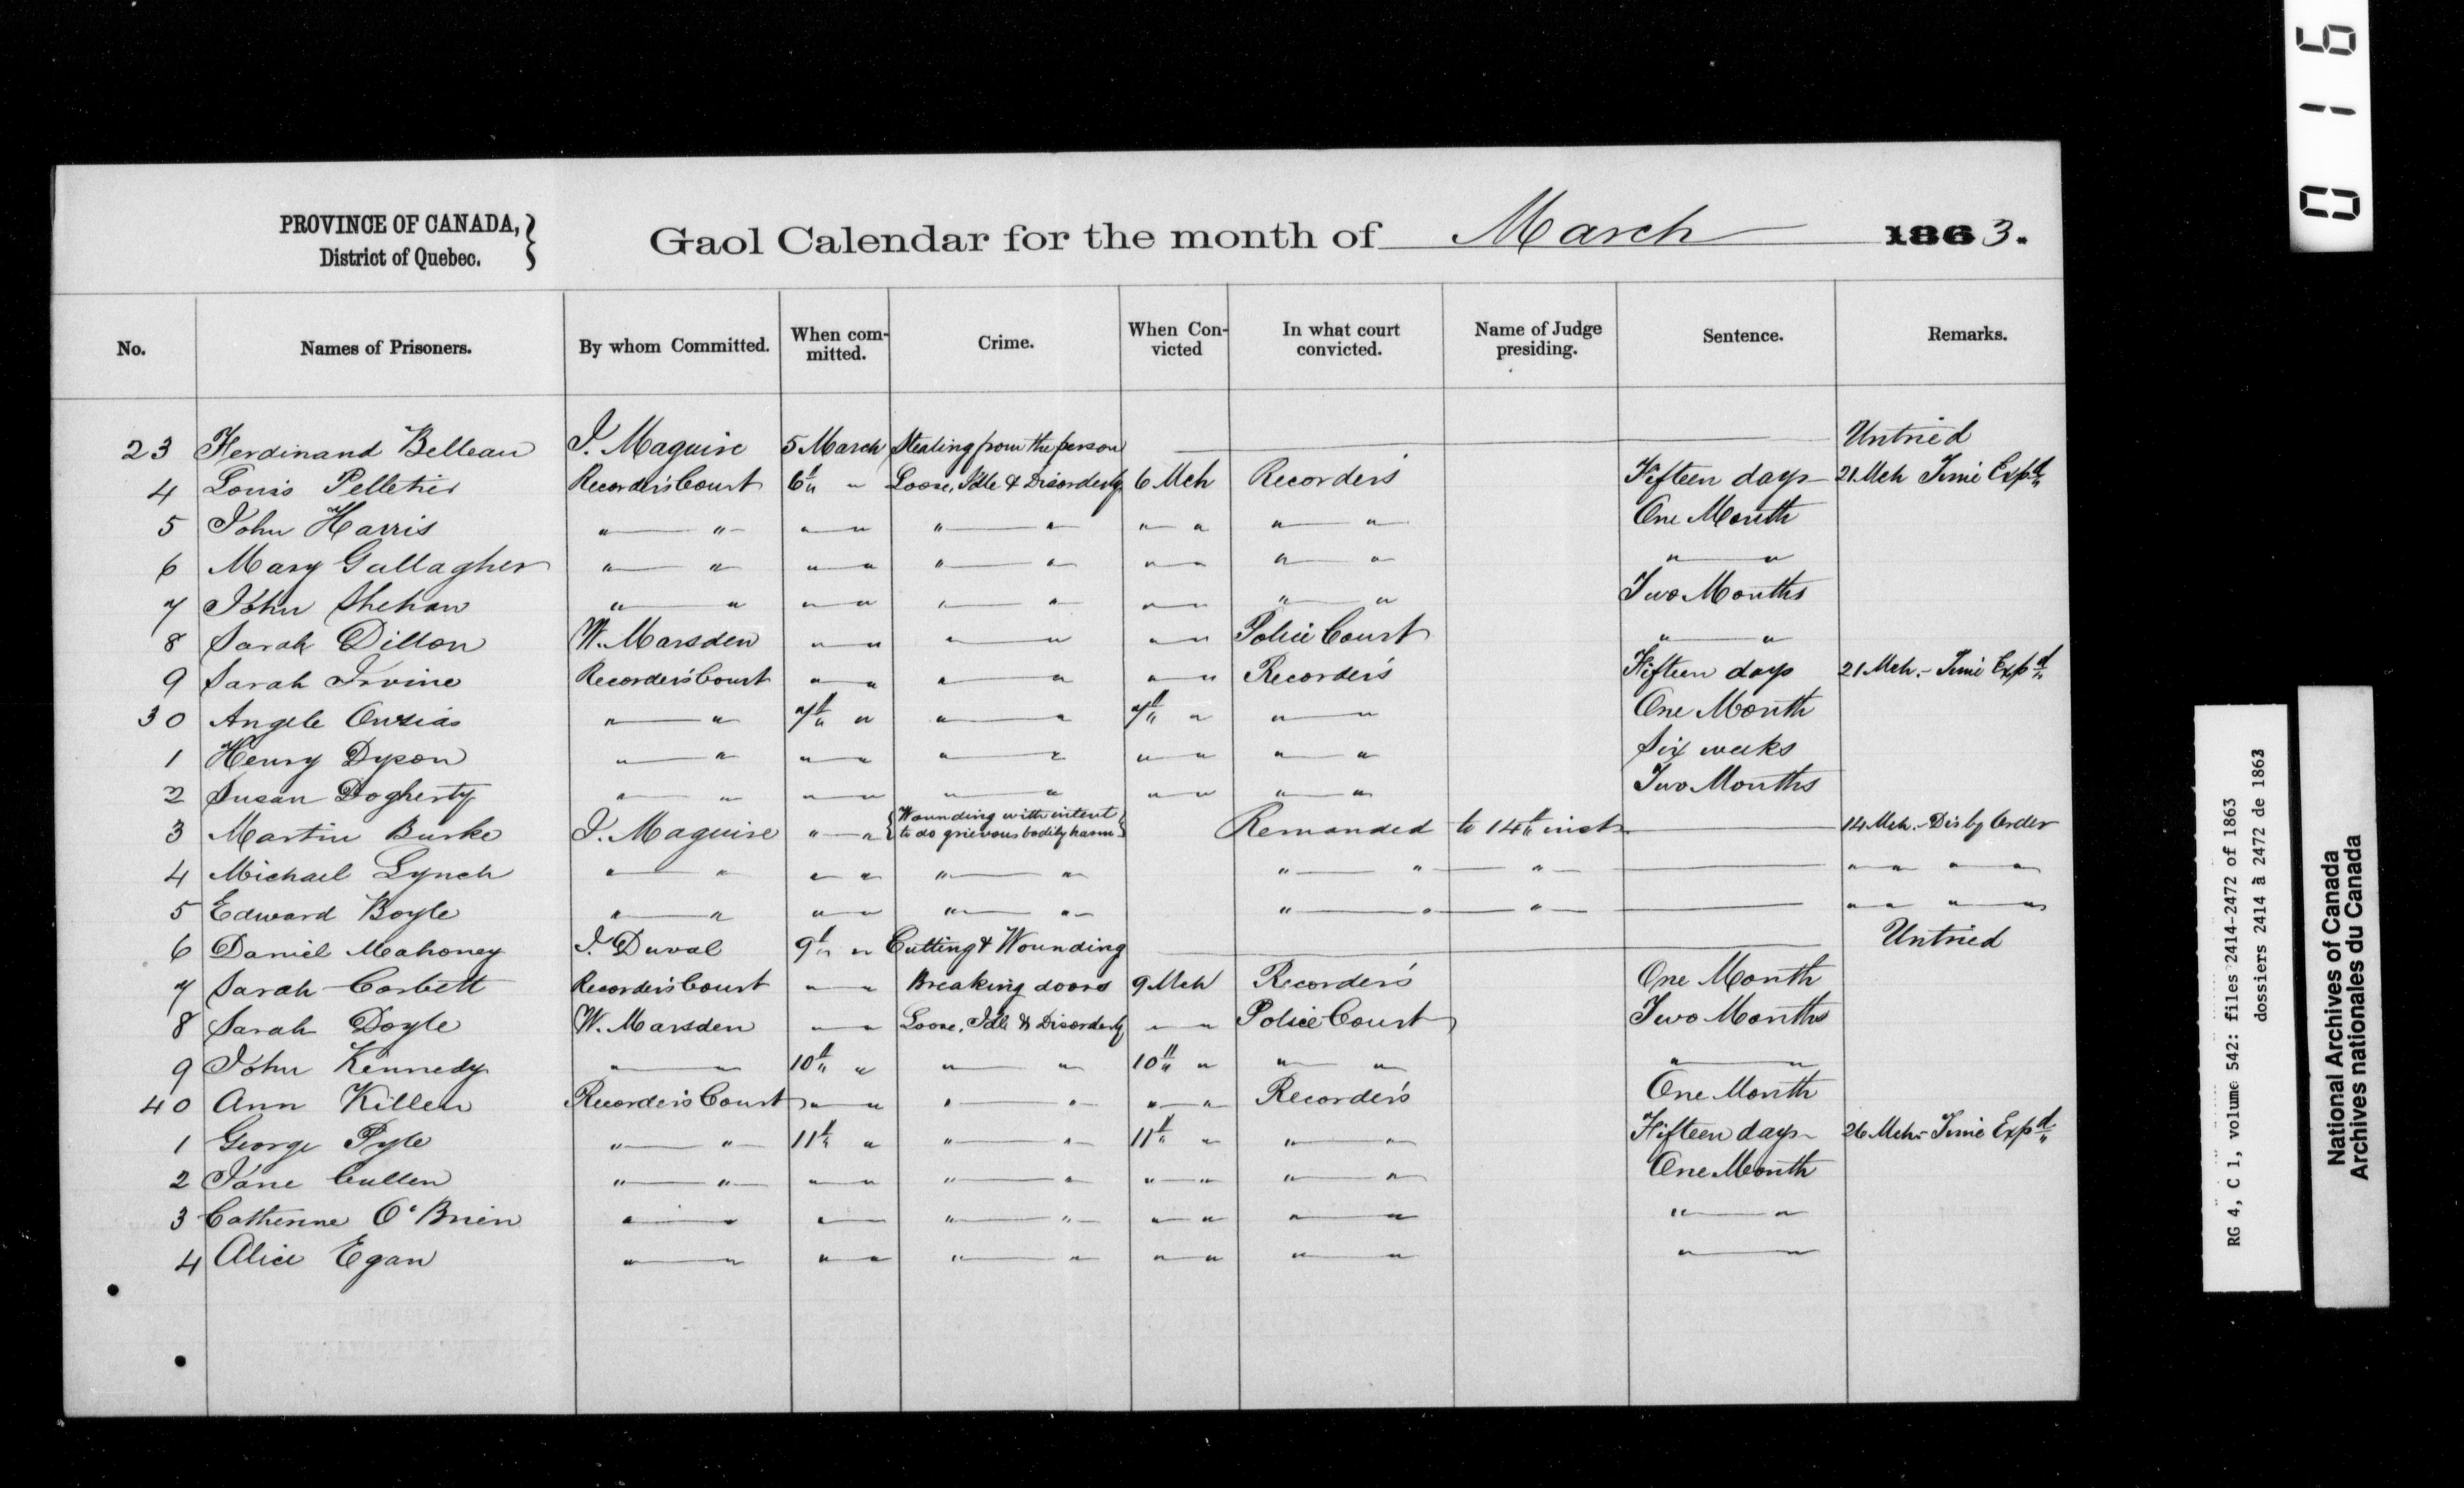 PROVINCE OF CANADA,
District of Quebec.
Gaol Calendar for the month of March 1863.
No. Names of Prisoners. By whom Committed. When com-mitted. Crime. When Con-victed In what court convicted. Name of Judge presiding. Sentence. Remarks.
23 Ferdinand Belleau J. Maguire 5 March Stealing from the person Untried
4 Louis Pelletier Recorder's Court 6th " Loose, Idle & Disorderly 6 Mch Recorder's Fifteen days 21 Mch Time Expd
5 John Harris " " " " " " " " " " One Month
6 Mary Gallagher " " " " " " " " " " " "
7 John Shehan " " " " " " " " " " Two Months
8 Sarah Dillon W. Marsden " " " " " " Police Court " "
9 Sarah Irvine Recorder's Court " " " " " " Recorder's Fifteen days 21 Mch. - Time Expd
30 Angele " " 7th " " " 7th " " " One Month
1 Henry Dyson " " " " " " " " " " Six weeks
2 Susan Dogherty " " " " " " " " " " Two Months
3 Martin Burke J. Maguire " " Wounding with intent to do grievous bodily harm Remanded to 14th inst 14 Mch. - Dis by Order
4 Michael Lynch " " " " " " " " " " " " "
5 Edward Boyle " " " " " " " " " " " " "
6 Daniel Mahoney J. Duval 9th " Cutting & Wounding Untried
7 Sarah Corbett Recorder's Court " " Breaking doors 9 Mch Recorder's One Month
8 Sarah Doyle W. Marsden " " Loose, Idle & Disorderly " " Police Court Two Months
9 John Kennedy " " 10th " " " 10th " " " " "
40 Ann Killen Recorder's Court " " " " " " Recorder's One Month
1 George Pyle " " 11th " " " 11th " " " Fifteen days 26 Mch - Time Expd
2 Jane Cullen " " " " " " " " " " One Month
3 Catherine O'Brien " " " " " " " " " " " "
4 Alice Egan " " " " " " " " " " " "
0116
RG 4, C 1, volume 542: files 2414-2472 of 1863
dossiers 2414 à 2472 de 1863
National Archives of Canada
Archives nationales du Canada